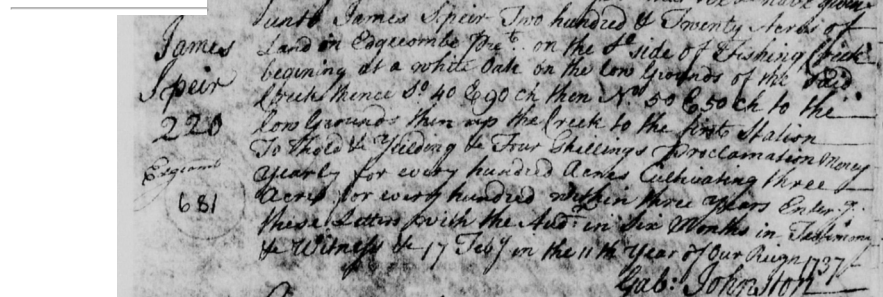 unto James Speir Two hundred & Twenty Acres of
Land in Edgecombe Prect. on the So. side of Fishing Creek
begining at a white Oak on the low Grounds of the said
Creek thence So. 40 E 90 ch then No. 50 E 50 ch to the
low Grounds then up the Creek to the first Station
To hold &c Yielding &c Four Shillings Proclamation Money
Yearly for every hundred Acres Cultivating three
Acres for every hundred within three Years Enter.g.
these Letters with the Aud.r in Six Months in Testimony
&c Witness &c 17 Feb.y in the 11th Year of Our Reign 1737
Gab: Johnston
James
Speir
220
Edgecomb
681